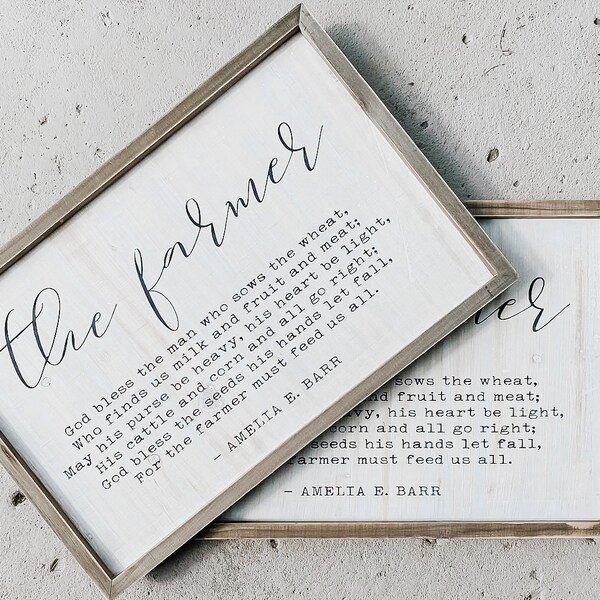 the farmer
God bless the man who sows the wheat,
Who finds us milk and fruit and meat;
May his purse be heavy, his heart be light,
His cattle and corn and all go right;
God bless the seeds his hands let fall,
For the farmer must feed us all.
- AMELIA E. BARR
sows the wheat,
fruit and meat;
his heart be light,
corn and all go right;
seeds his hands let fall,
farmer must feed us all.
- AMELIA E. BARR